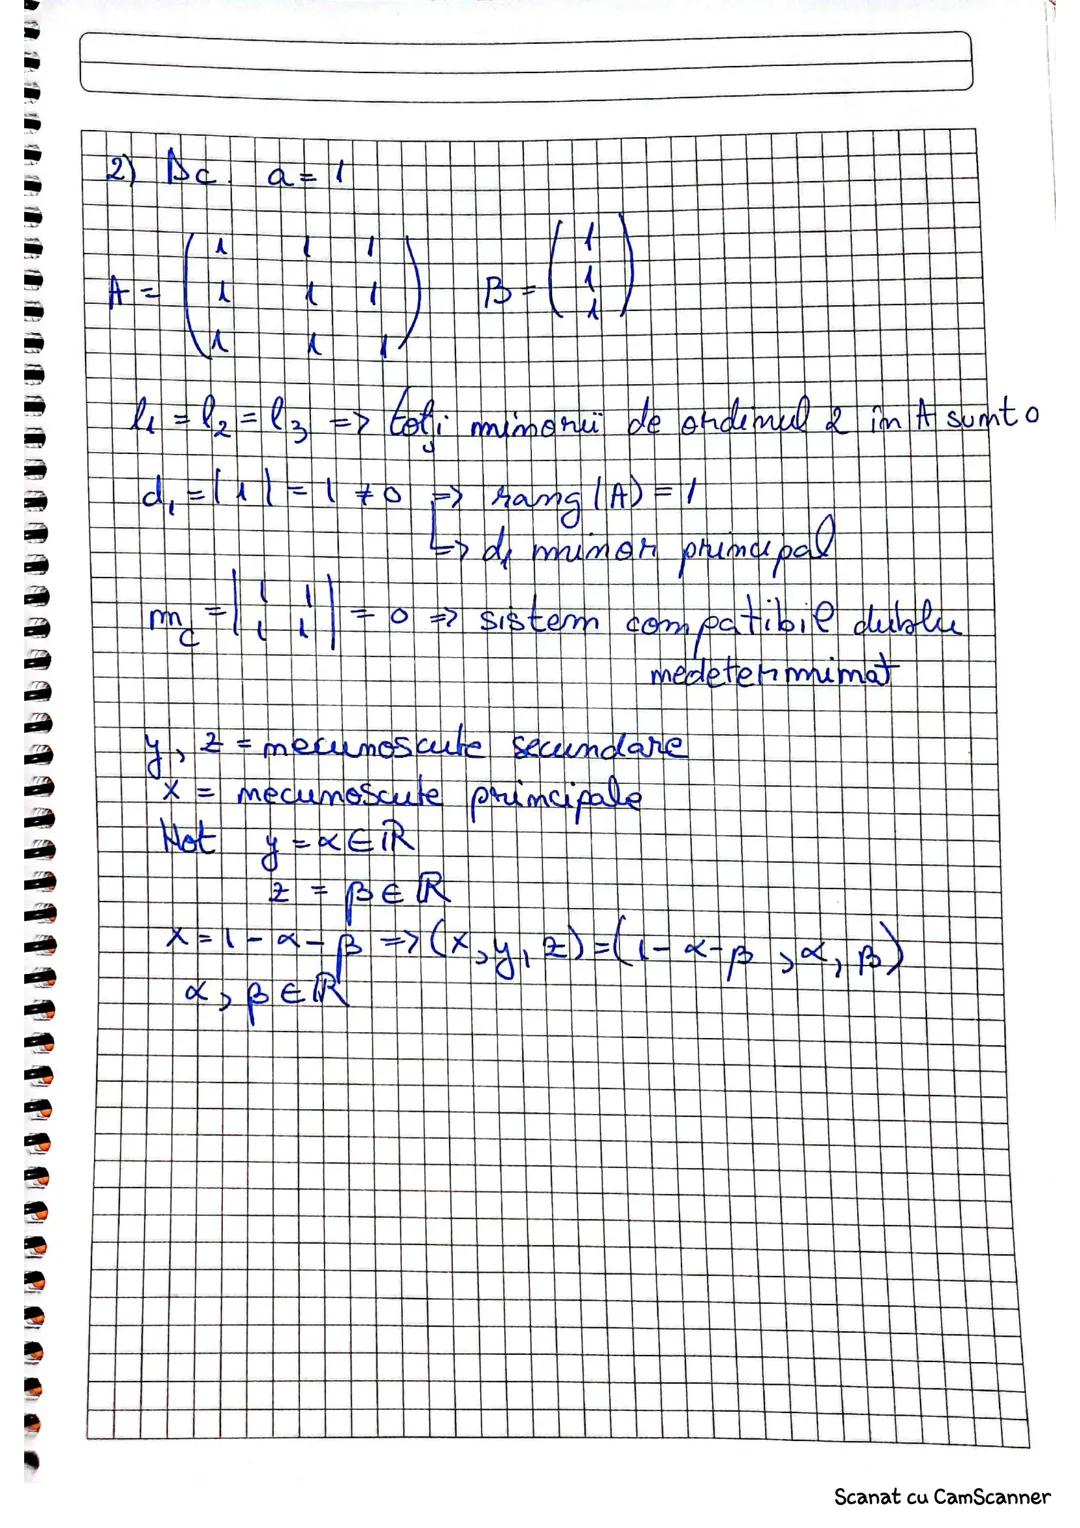 2) Dc. a = 1
A = ( 1 1 1 B = ( 1
1 1 1 1
1 1 1 ) 1 )
l₁ = l₂ = l₃ => toți minorii de ordinul 2 în A sunt 0
d₁ = |1| = 1 ≠ 0 => rang (A) = 1
=> d₁ minor principal
m_c = | 1 1 ; 1 1 | = 0 => sistem compatibil dublu
nedeterminat
y, z = necunoscute secundare
x = necunoscute principale
Not y = α ∈ ℝ
z = β ∈ ℝ
x = 1 - α - β => (x, y, z) = (1 - α - β, α, β)
α, β ∈ ℝ
Scanat cu CamScanner